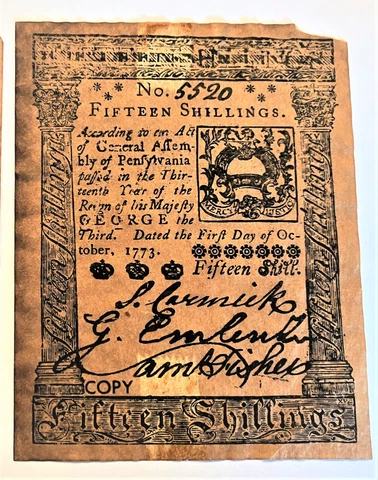 No. 5520
FIFTEEN SHILLINGS.
According to an Act
of General Assem-
bly of Pensylvania
passed in the Thir-
teenth Year of the
Reign of his Majesty
GEORGE the
Third. Dated the First Day of Oc-
tober, 1773.
Fifteen Shill.
MERCY JUSTICE
Fifteen Shillings
Fifteen Shillings
S. Cormick
G. Emlen
Sam Fisher
COPY
Fifteen Shillings